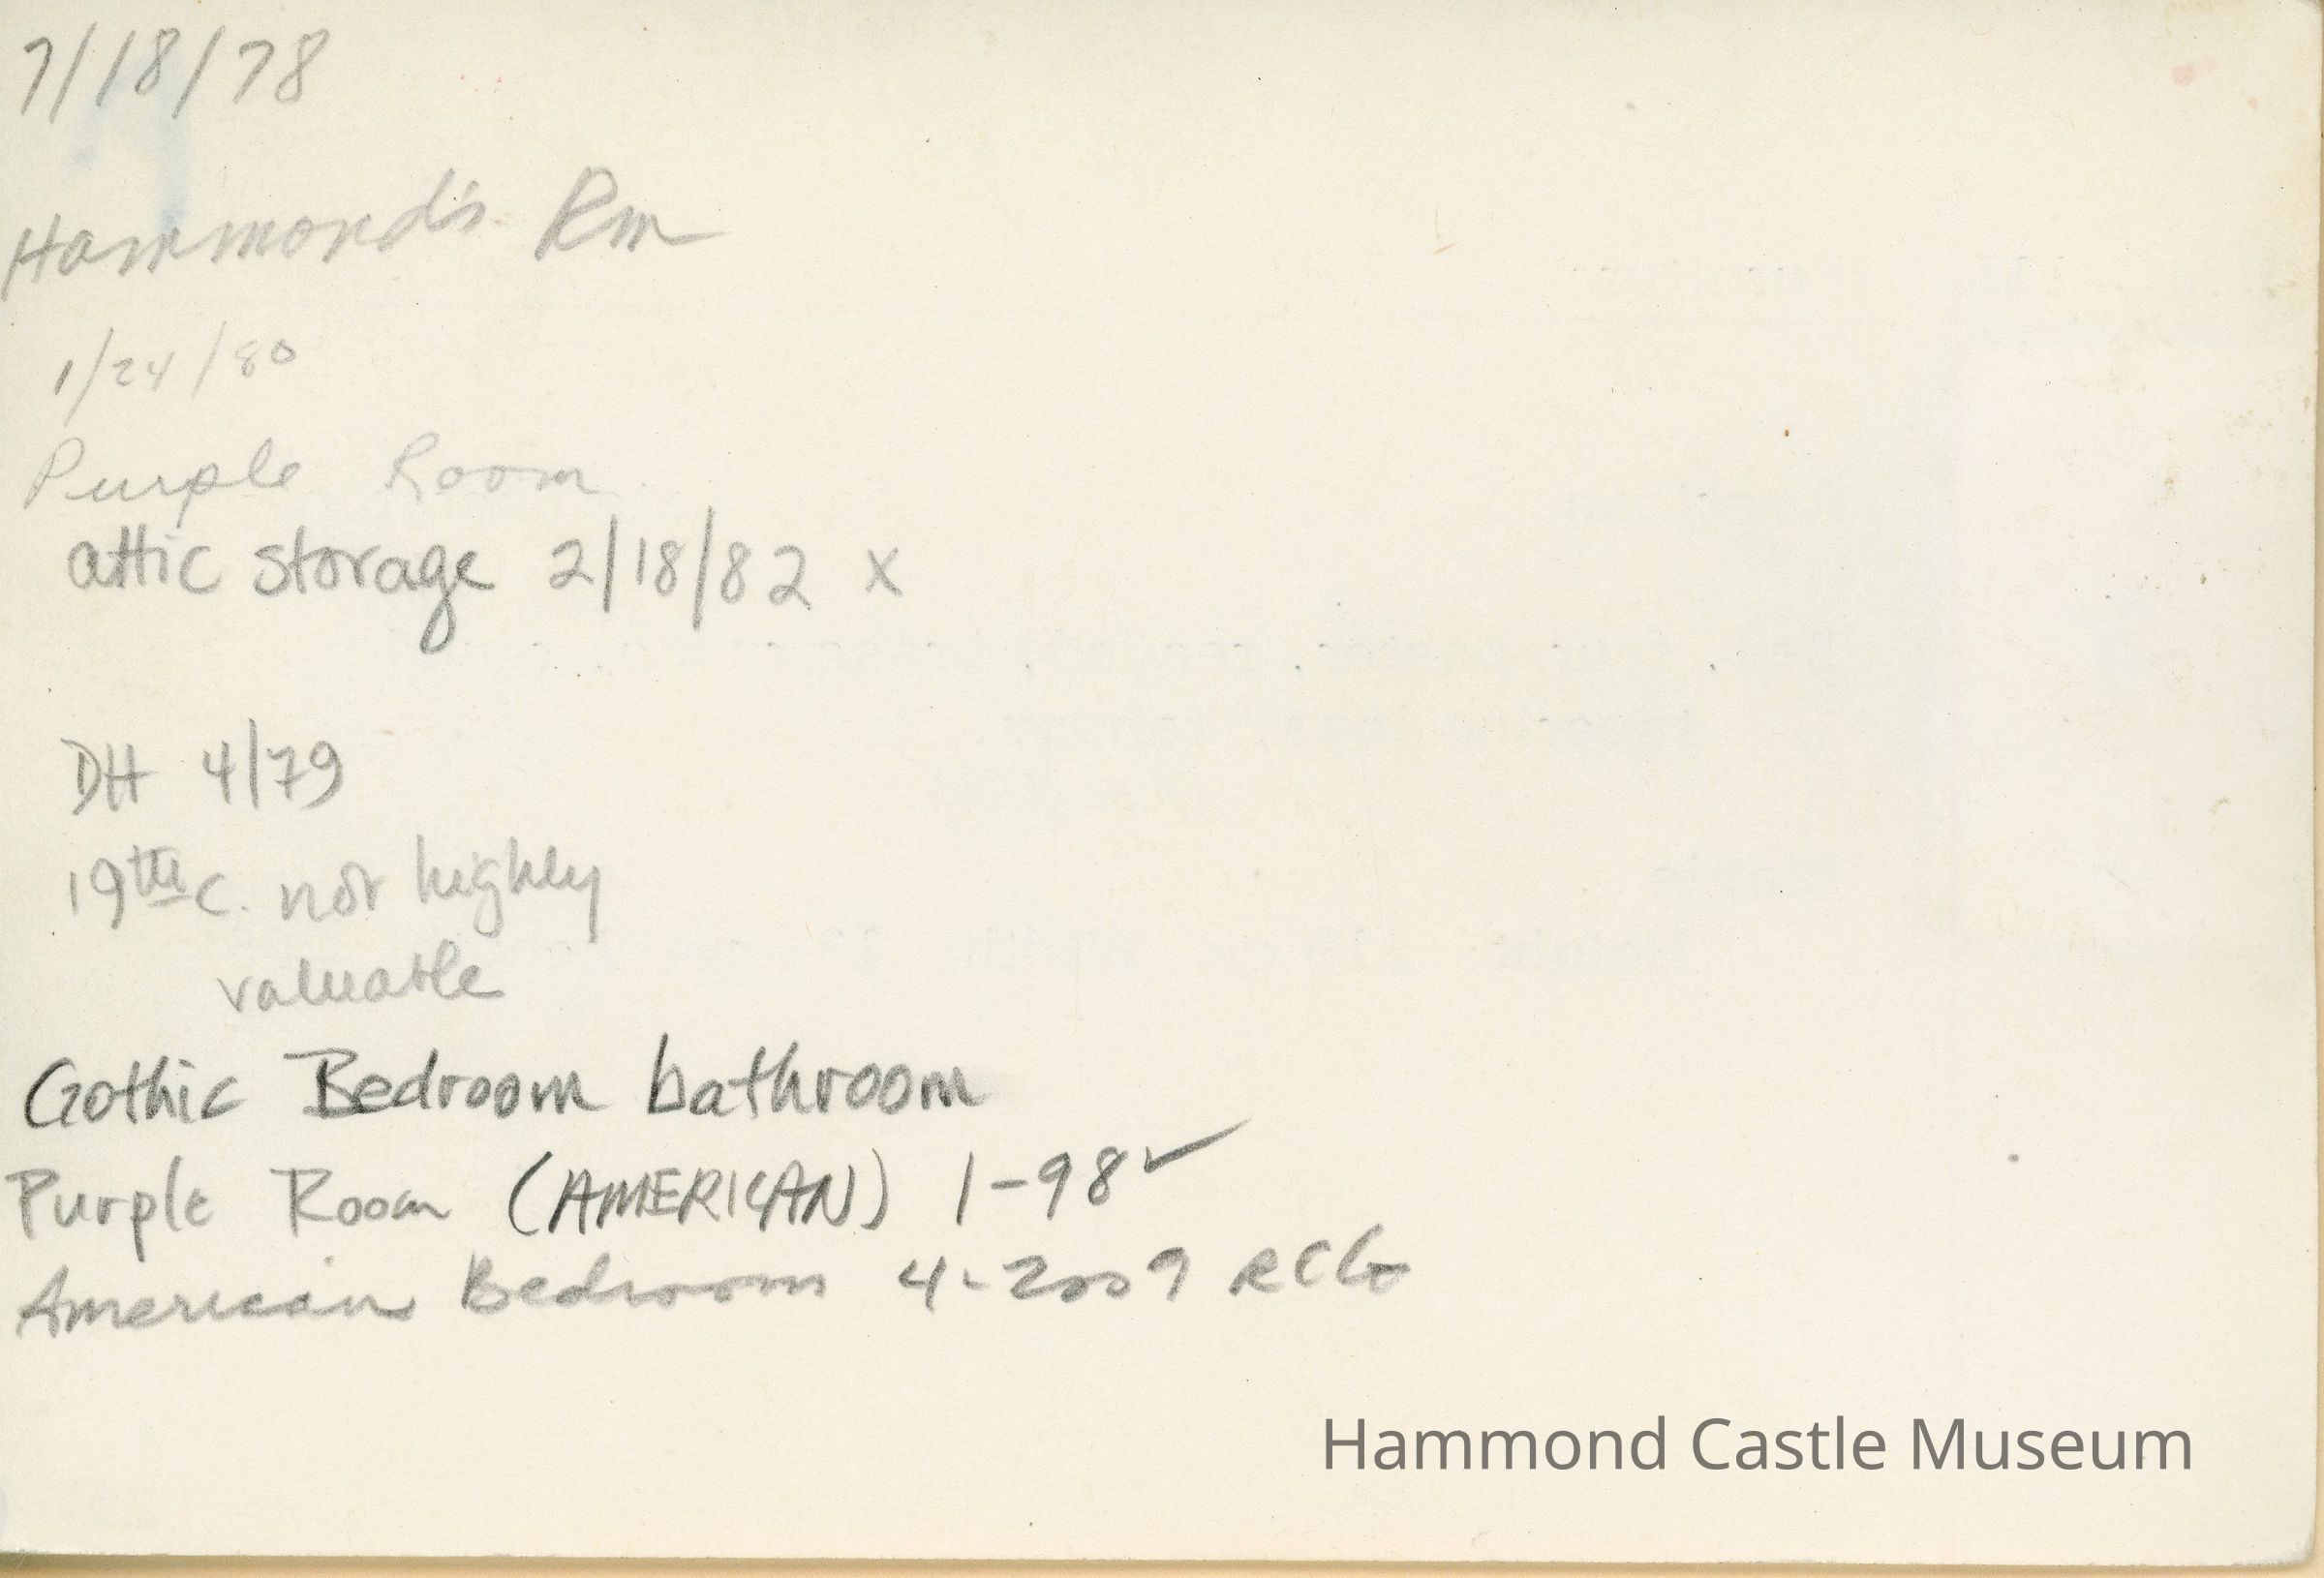 7/18/78
Hammond's Rm
1/24/80
Purple Room
attic storage 2/18/82 x
DH 4/79
19th c. not highly
valuable
Gothic Bedroom bathroom
Purple Room (AMERICAN) 1-98 ✓
American Bedroom 4-2009 RCG
Hammond Castle Museum